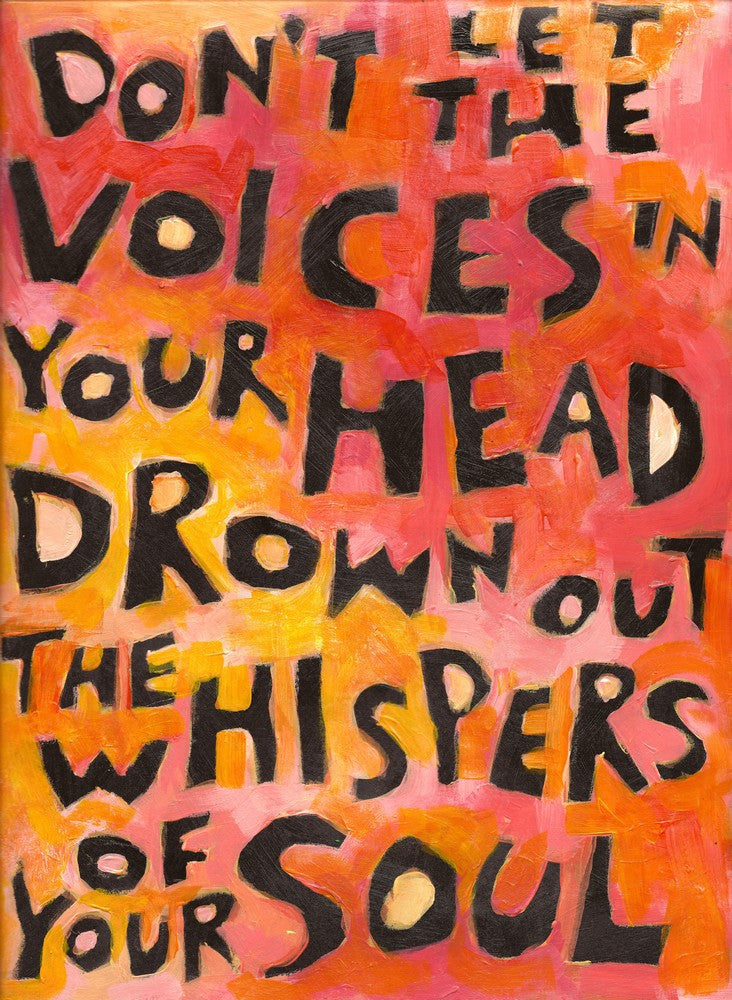 DON'T LET
THE
VOICES IN
YOUR HEAD
DROWN OUT
THE
WHISPERS
OF
YOUR SOUL